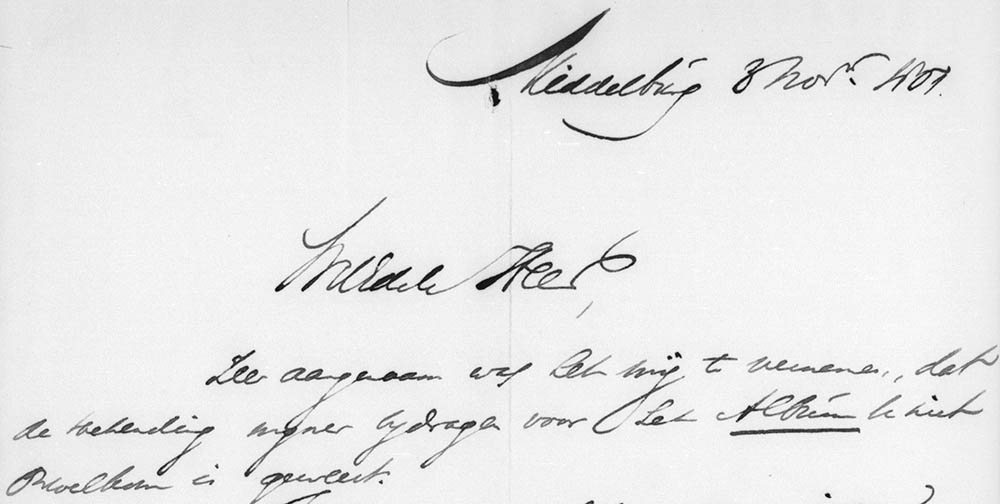 Middelburg 3 Novr. 1901.
WelEdele Heer,
Zeer aangenaam was het mij te vernemen, dat
de toezending mijner bydragen voor het Album U niet
onwelkom is geweest.